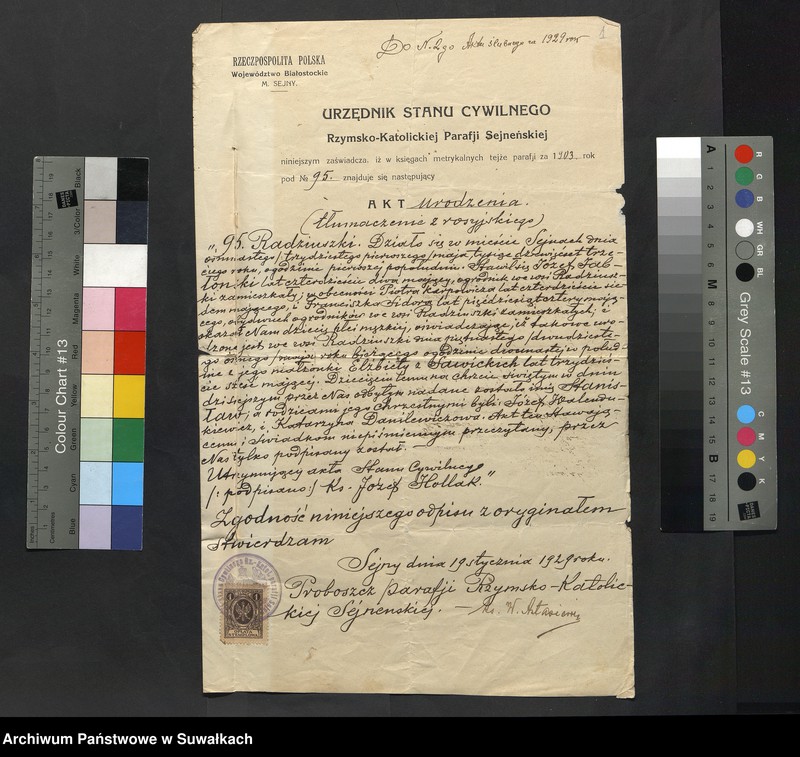 Do N. 2go Aktu ślubnego za 1929 rok
1
RZECZPOSPOLITA POLSKA
Województwo Białostockie
M. SEJNY.
URZĘDNIK STANU CYWILNEGO
Rzymsko-Katolickiej Parafji Sejneńskiej
niniejszym zaświadcza, iż w księgach metrykalnych tejże parafji za 1903 rok
pod № 95. znajduje się następujący
AKT urodzenia.
(tłumaczenie z rosyjskiego)
„95. Radziuszki. Działo się w mieście Sejnach dnia
osiemnastego/trzydziestego pierwszego/maja tysiąc dziewięćset trze-
ciego roku, o godzinie pierwszej popołudniu. Stawił się Józef
lat czterdzieście dwa mający, ogrodnik we wsi Radziusz-
ki zamieszkały, w obecności Piotra Karpowicza lat czterdzieście sie-
dem mającego, i Franciszka Sidora lat pięćdziesiąt cztery mają-
cego, obydwóch ogrodników we wsi Radziuszki zamieszkałych, i
okazał Nam dziecię płci męzkiej, oświadczając, iż takowe uro-
dzone jest we wsi Radziuszki dnia piętnastego/dwudzieste-
go ósmego/maja roku bieżącego o godzinie dwunastej w połud-
nie z jego małżonki Elżbiety z Sawickich lat trzydzie-
ście sześć mającej. Dziecięciu temu na chrzcie świętym w dniu
dzisiejszym przez Nas odbytym nadane zostało imię Stanis-
ław, a rodzicami jego chrzestnymi byli Józef Halenu-
kiewicz, i Katarzyna Danilewiczowa. Akt ten stawają-
cemu i świadkom niepiśmiennym przeczytany, przez
Nas tylko podpisany został. —
Utrzymujący akta Stanu Cywilnego
/: podpisano:/ Ks. Józef Hollak."
Zgodność niniejszego odpisu z oryginałem
stwierdzam
Sejny dnia 19 stycznia 1929 roku.
Proboszcz parafji Rzymsko-Katolic-
kiej Sejneńskiej. — Ks. W. Astasiewicz
1 1
Colour Chart #13
Inches
Centimetres
Blue
Cyan
Green
Yellow
Red
Magenta
White
3/Color
Black
Grey Scale #13
A 1 2 3 4 5 6 M 8 9 10 11 12 13 14 15 B 17 18 19
R
G
B
WH
GR
BL
C
M
Y
K
Archiwum Państwowe w Suwałkach